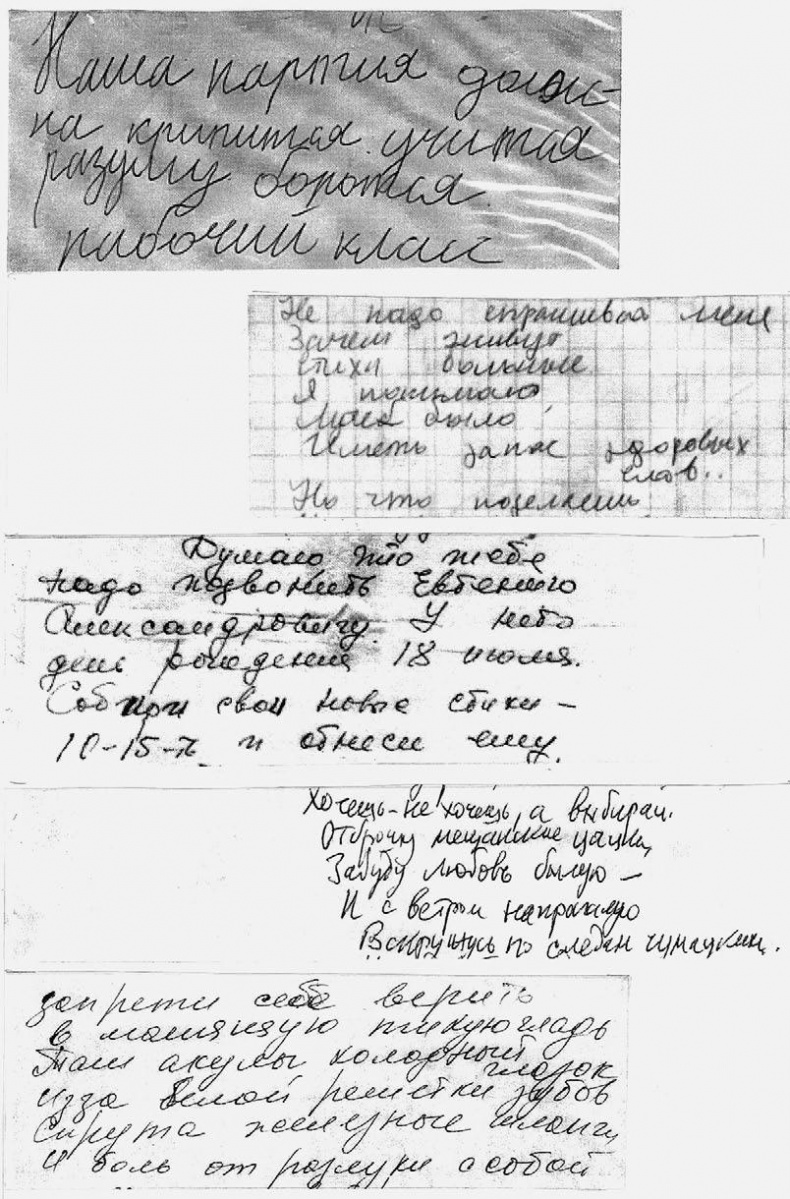 Наша партия долж-
на крипится учится
разуму боротся
рабочий класс
Не надо спрашивать меня
Зачем живут
стихи больные
Я понимаю
Иметь запас здоровых
слов..
Но что поделаешь
Думаю что тебе
надо позвонить Евгению
Александровичу. У него
день рождения 18 июля.
Собери свои новые стихи –
10-15-ть и отнеси ему.
Хочешь-не хочешь, а выбирай.
Отброшу мещанские цацки,
Забуду любовь былую –
И с ветром напрямую
по следам чумацким.
запрети себе верить
в тихую гладь
Там акулы холодный
глазок
из за белой решетки зубов
Спрута железные шланги
и боль от разлуки с собой